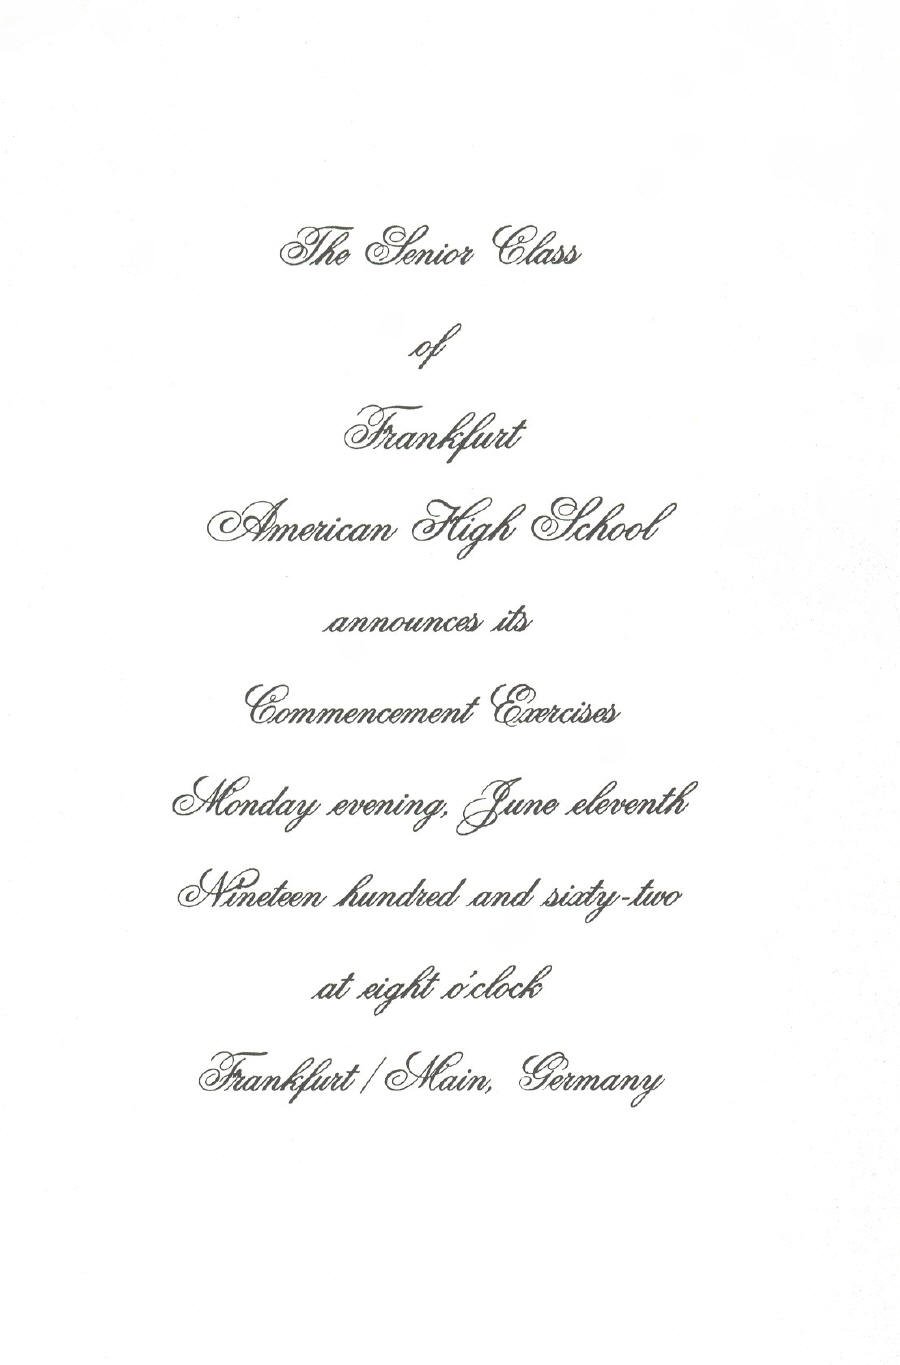 The Senior Class
of
Frankfurt
American High School
announces its
Commencement Exercises
Monday evening, June eleventh
Nineteen hundred and sixty-two
at eight o'clock
Frankfurt / Main, Germany